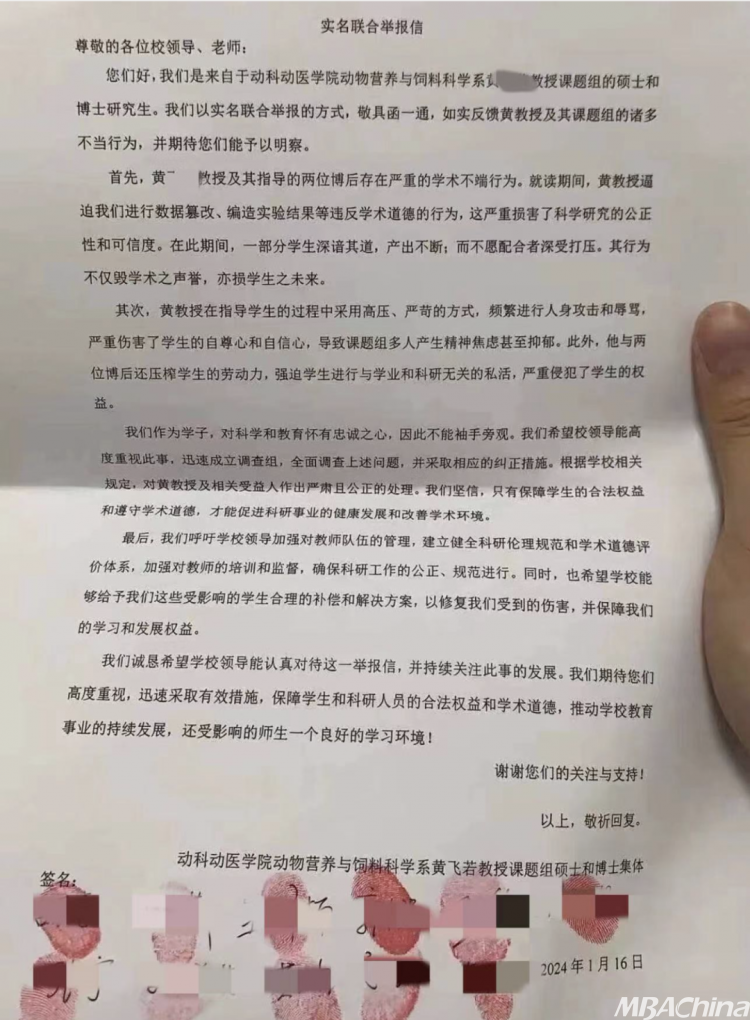 实名联合举报信
尊敬的各位校领导、老师：
您们好，我们是来自于动科动医学院动物营养与饲料科学系黄 教授课题组的硕士和
博士研究生。我们以实名联合举报的方式，敬具函一通，如实反馈黄教授及其课题组的诸多
不当行为，并期待您们能予以明察。
首先，黄 教授及其指导的两位博后存在严重的学术不端行为。就读期间，黄教授逼
迫我们进行数据篡改、编造实验结果等违反学术道德的行为，这严重损害了科学研究的公正
性和可信度。在此期间，一部分学生深谙其道，产出不断；而不愿配合者深受打压。其行为
不仅毁学术之声誉，亦损学生之未来。
其次，黄教授在指导学生的过程中采用高压、严苛的方式，频繁进行人身攻击和辱骂，
严重伤害了学生的自尊心和自信心，导致课题组多人产生精神焦虑甚至抑郁。此外，他与两
位博后还压榨学生的劳动力，强迫学生进行与学业和科研无关的私活，严重侵犯了学生的权
益。
我们作为学子，对科学和教育怀有忠诚之心，因此不能袖手旁观。我们希望校领导能高
度重视此事，迅速成立调查组，全面调查上述问题，并采取相应的纠正措施。根据学校相关
规定，对黄教授及相关受益人作出严肃且公正的处理。我们坚信，只有保障学生的合法权益
和遵守学术道德，才能促进科研事业的健康发展和改善学术环境。
最后，我们呼吁学校领导加强对教师队伍的管理，建立健全科研伦理规范和学术道德评
价体系，加强对教师的培训和监督，确保科研工作的公正、规范进行。同时，也希望学校能
够给予我们这些受影响的学生合理的补偿和解决方案，以修复我们受到的伤害，并保障我们
的学习和发展权益。
我们诚恳希望学校领导能认真对待这一举报信，并持续关注此事的发展。我们期待您们
高度重视，迅速采取有效措施，保障学生和科研人员的合法权益和学术道德，推动学校教育
事业的持续发展，还受影响的师生一个良好的学习环境！
谢谢您们的关注与支持！
以上，敬祈回复。
动科动医学院动物营养与饲料科学系黄飞若教授课题组硕士和博士集体
签名：
2024 年 1 月 16 日
MBAChina